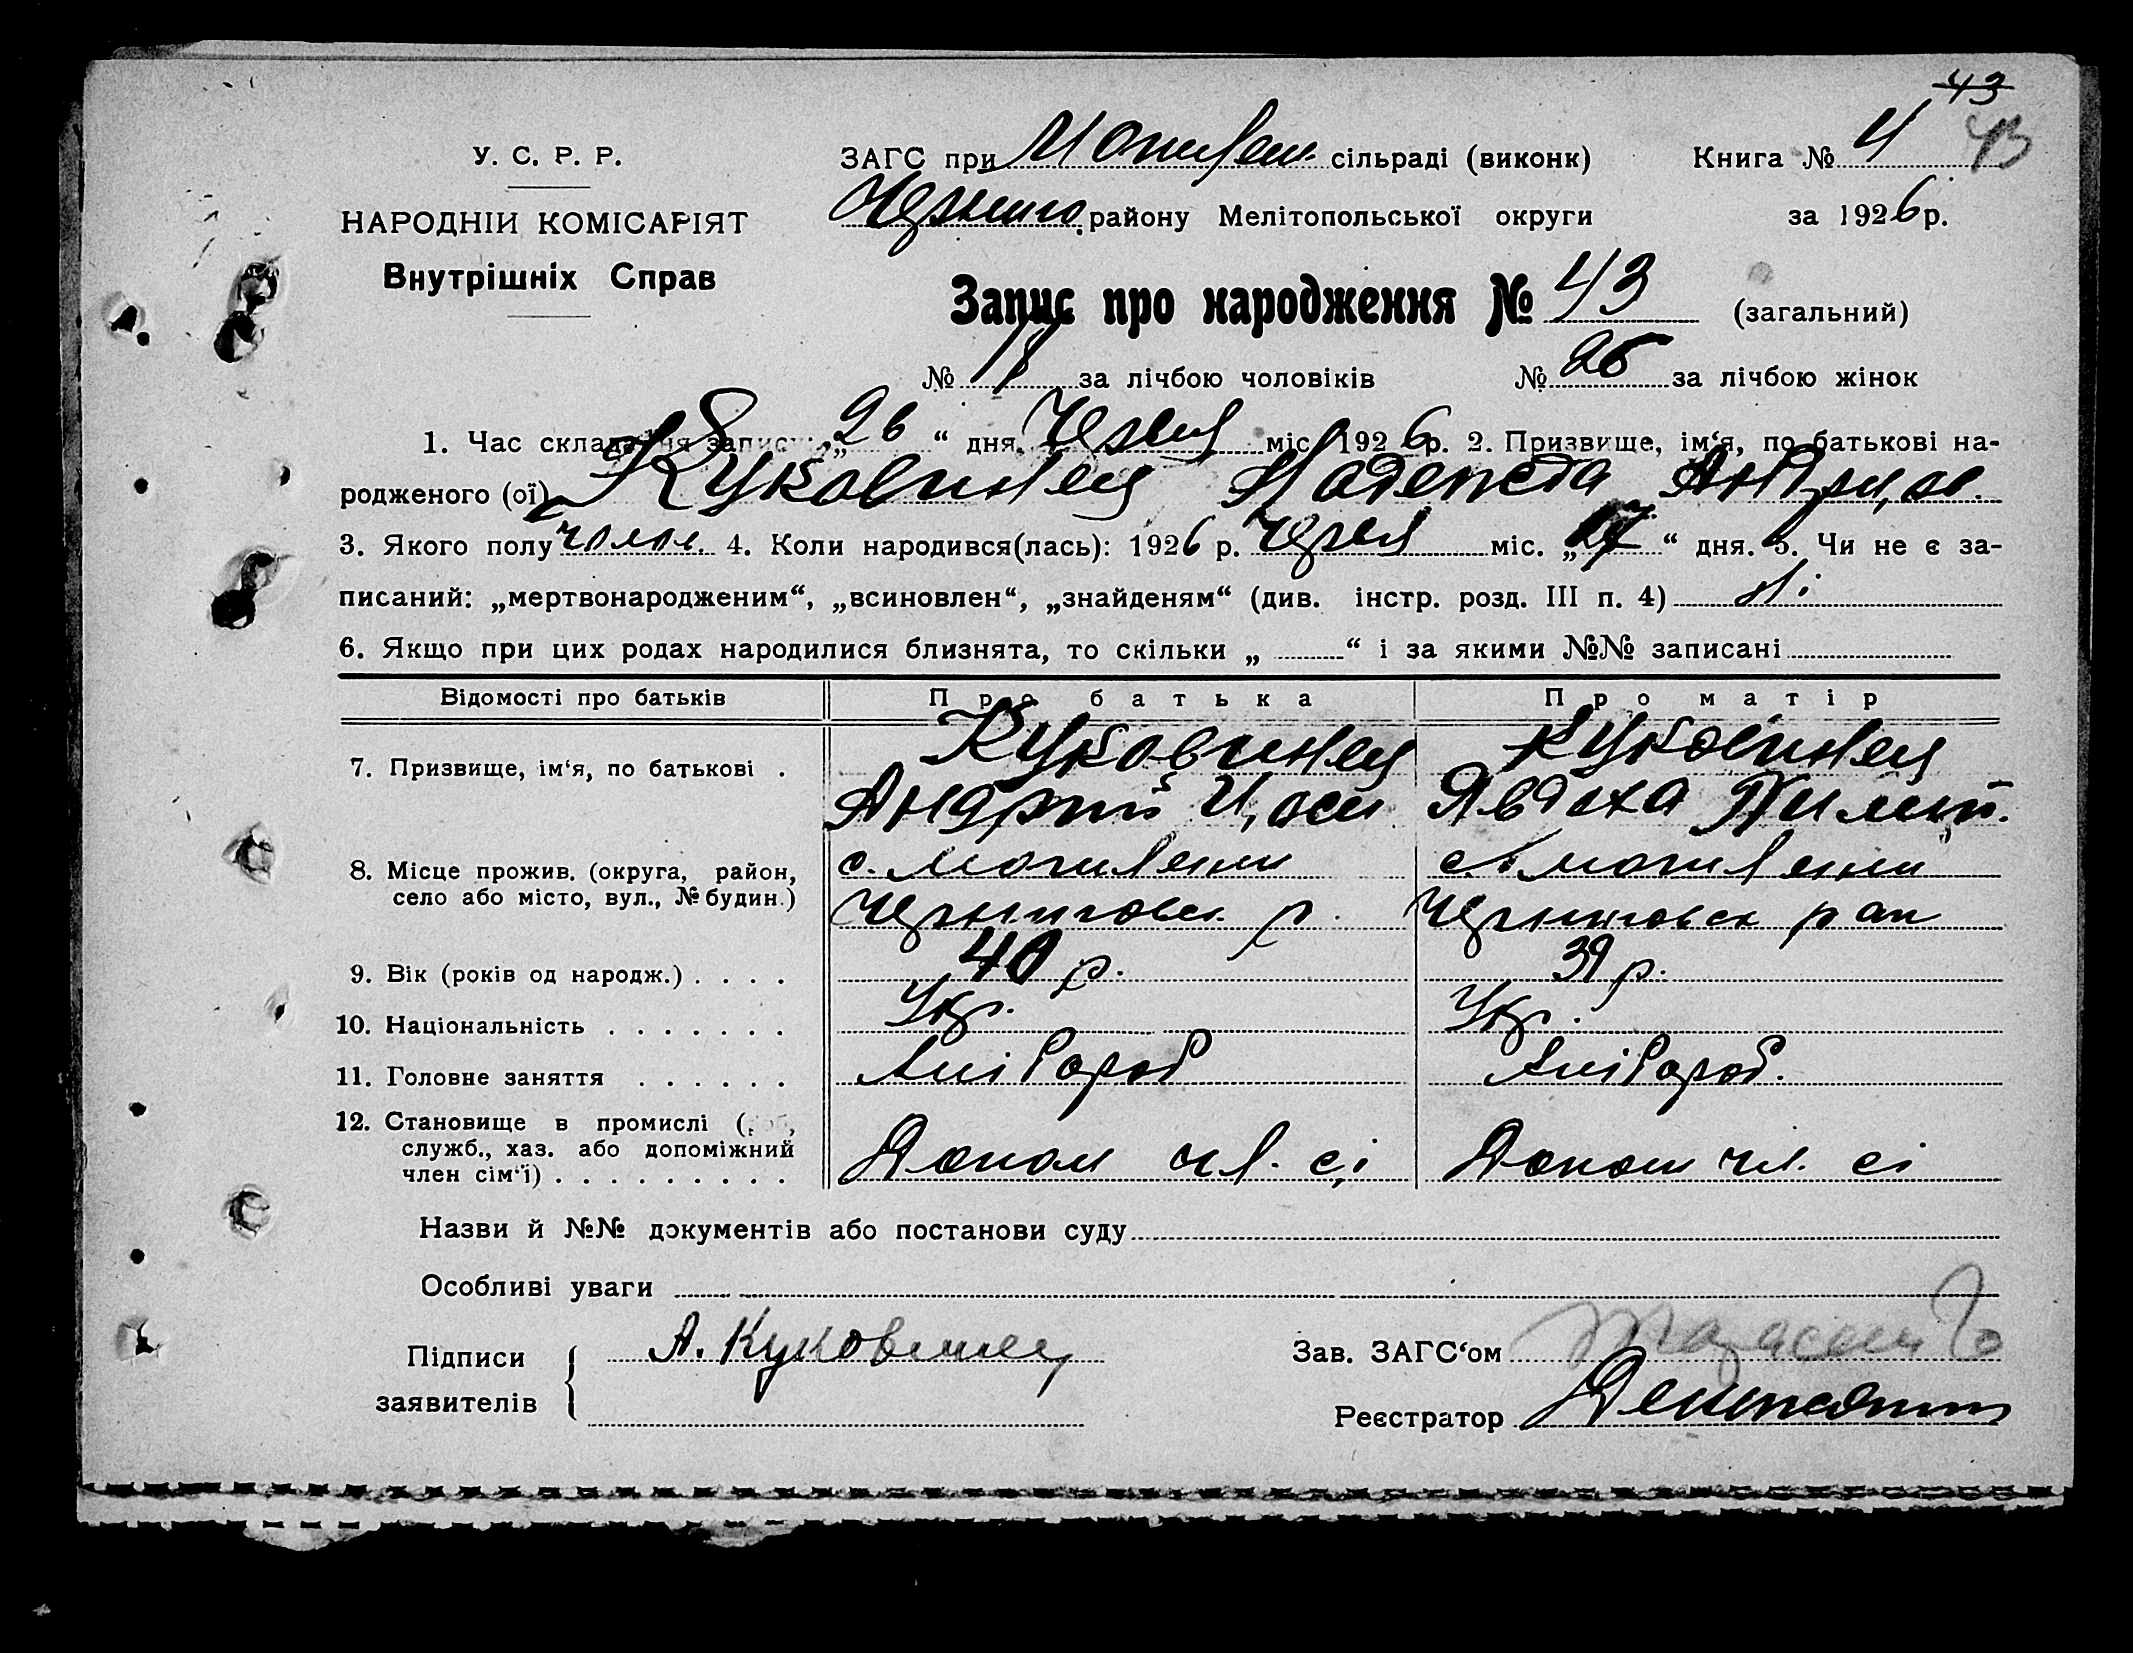 43
У. С. Р. Р. ЗАГС при Могилян. сільраді (виконк) Книга № 4 43
НАРОДНІЙ КОМІСАРІЯТ Черниго. району Мелітопольської округи за 1926 р.
Внутрішніх Справ
Запис про народження № 43 (загальний)
№ за лічбою чоловіків № 26 за лічбою жінок
1. Час складання запису: „26“ дня. Червня міс. 1926 р. 2. Призвище, ім‘я, по батькові на-
родженого (ої) Куковинец Надежда Андри,ов.
3. Якого полу 4. Коли народився(лась): 1926 р. Червня міс. „17“ дня. 5. Чи не є за-
писаний: „мертвонародженим“, „всиновлен“, „знайденям“ (див. інстр. розд. III п. 4) Ні
6. Якщо при цих родах народилися близнята, то скільки „ “ і за якими №№ записані
Відомості про батьків Про батька Про матір
7. Призвище, ім‘я, по батькові . Куковинец Куковинец
Андрій Явдоха
8. Місце прожив. (округа, район, с. Могиляни с. Могиляни
село або місто, вул., № будин.) Черниговск р. Черниговск рай
9. Вік (років од народж.) . . . . 40 р. 39 р.
10. Національність . . . . . . . Укр. Укр.
11. Головне заняття . . . . . . Хліборob Хліборob.
12. Становище в промислі (роб,
служб., хаз. або допоміжний Допом чл. сі Допом чл. сі
член сім‘ї) . . . . . . . . .
Назви й №№ документів або постанови суду
Особливі уваги
Підписи А. Куковинец Зав. ЗАГС‘ом
заявителів Реєстратор